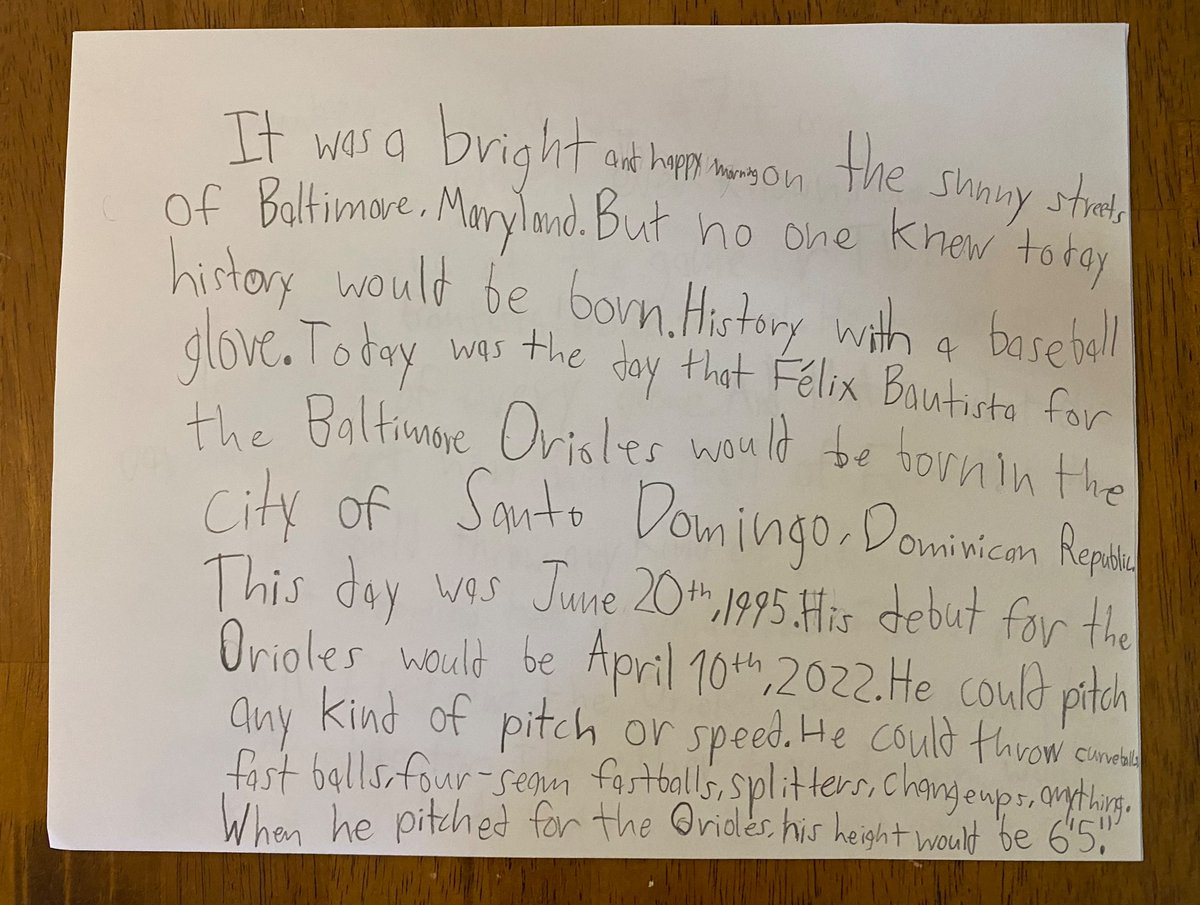 It was a bright and happy morning on the sunny streets
of Baltimore, Maryland. But no one knew today
history would be born. History with a baseball
glove. Today was the day that Félix Bautista for
the Baltimore Orioles would be born in the
city of Santo Domingo, Dominican Republic.
This day was June 20th, 1995. His debut for the
Orioles would be April 10th, 2022. He could pitch
any kind of pitch or speed. He could throw curveballs,
fast balls, four-seam fastballs, splitters, changeups, anything.
When he pitched for the Orioles, his height would be 6"5."